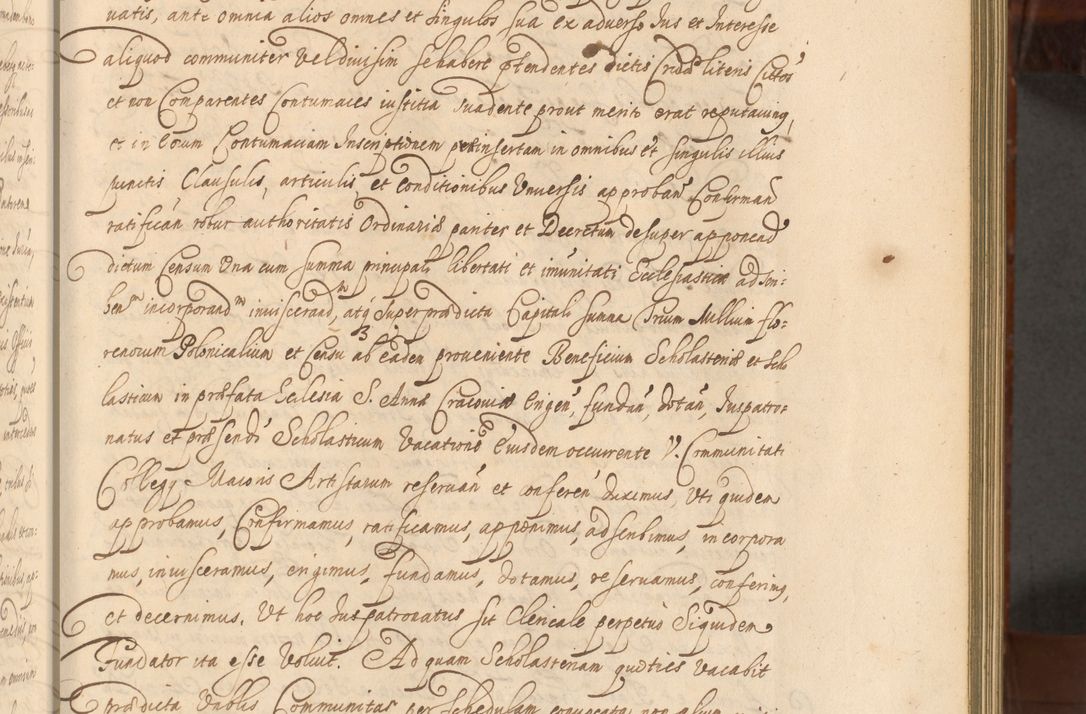 uatis, ante omnia alios omnes et singulos sua ex adverso Jus et Interesse
aliquod communiter vel divisim se habere ptendentes dictis Crudis literis Cittos
et non Comparentes Contumaces iustitia suadente prout merito erat reputaving,
et in eorum Contumaciam Inscriptionem preinsertam in omnibus et singulis illius
punctis Clausulis, articulis, et Conditionibus Unversis approban Confirman
ratifican robur authoritatis Ordinariæ pariter et Decretum desuper apponead
dictum Censum una cum summa principali libertati et imunitati Ecclesiasticæ adscri:
ben incorporand inviscerand, atq Super prædicta Capitali summa Trium Millium flo:
renorum Polonicalium et Censu ab eadem proveniente Beneficium Scholasteriæ et Scho
lasticum in præfata Ecclesia S. Annæ Cracoviæ Erigen, fundan, dotan, Juspatro:
natus et præsendi Scholasticum Vacatione Eiusdem occurrente V. Communitati
Collegy Maioris Artistarum reservan et conferen duximus, Uti quidem
approbamus, Confirmamus, ratificamus, apponimus, adscribimus, incorpora
mus, invisceramus, erigimus, fundamus, dotamus, reservamus, conferimg,
et decernimus. Ut hoc Juspatronatus sit Clericale perpetuo Siquidem
Fundator ita esse voluit. Ad quam Scholasteriam quoties vacabit
prædicta Communitas per schedulam convocata non alium